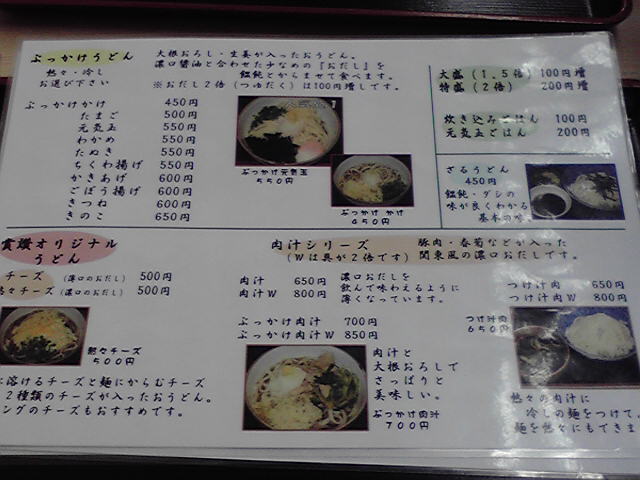 ぶっかけうどん
熱々・冷し
お選び下さい
大根おろし・生姜が入ったおうどん。
濃口醤油と合わせた少なめの『おだし』を
饂飩とからませて食べます。
※おだし2倍(つゆだく)は100円増しです。
ぶっかけかけ 450円
たまご 500円
元気玉 550円
わかめ 550円
たぬき 550円
ちくわ揚げ 550円
かきあげ 600円
ごぼう揚げ 600円
きつね 600円
きのこ 650円
人気No.1
ぶっかけ元気玉
550円
ぶっかけかけ
450円
大盛(1.5倍) 100円増
特盛(2倍) 200円増
炊き込みごはん 100円
元気玉ごはん 200円
ざるうどん
450円
饂飩・ダシの
味が良くわかる
基本の味
オリジナル
うどん
チーズ (薄口のおだし) 500円
熱々チーズ (濃口のおだし) 500円
熱々チーズ
500円
に溶けるチーズと麺にからむチーズ
2種類のチーズが入ったおうどん。
ングのチーズもおすすめです。
肉汁シリーズ
(Wは具が2倍です)
豚肉・春菊などが入った
関東風の濃口おだしです。
肉汁 650円
肉汁W 800円
濃口おだしを
飲んで味わえるように
薄くなっています。
ぶっかけ肉汁 700円
ぶっかけ肉汁W 850円
肉汁と
大根おろしで
さっぱりと
美味しい。
ぶっかけ肉汁
700円
つけ汁肉 650円
つけ汁肉W 800円
つけ汁肉
650円
熱々の肉汁に
冷しの麺をつけて
麺を熱々にもできま